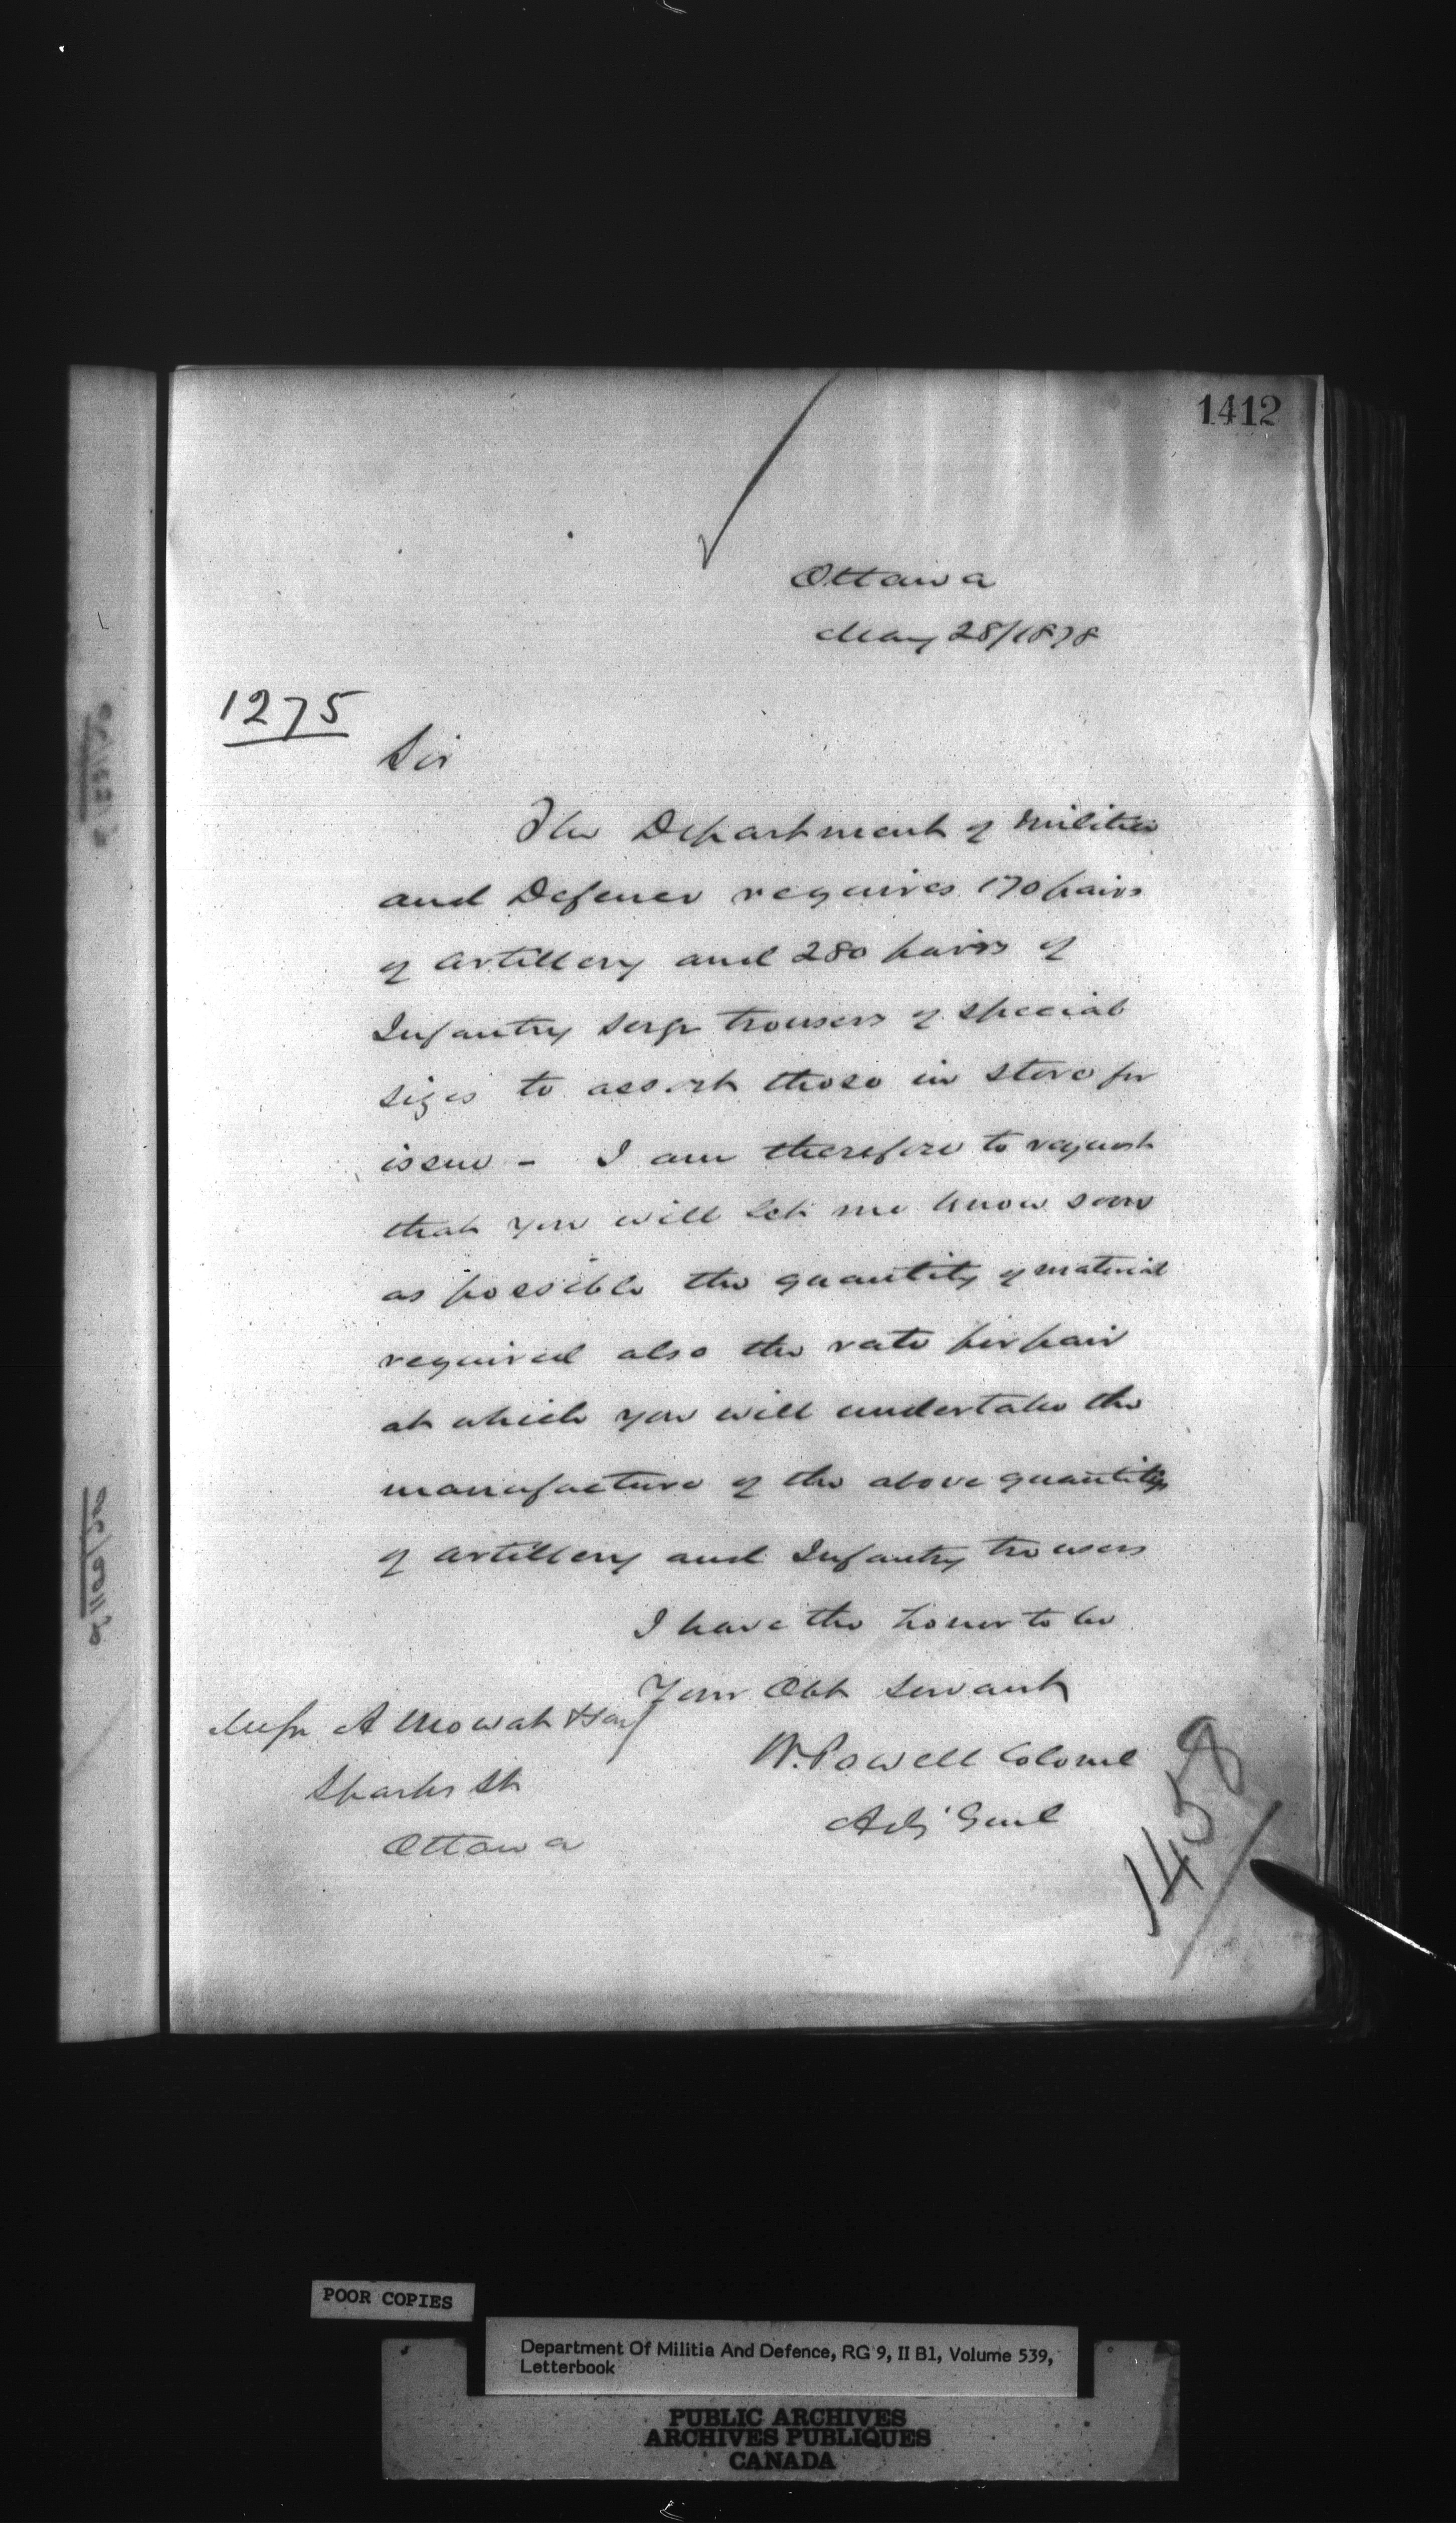 1412
Ottawa
May 28/1878
1275
Sir
The Department of Militia
and Defence requires 170 pairs
of Artillery and 280 pairs of
Infantry serge trousers of special
sizes to assort those in store for
issue - I am therefore to request
that you will let me know soon
as possible the quantity of material
required also the rate per pair
at which you will undertake the
manufacture of the above quantity
of Artillery and Infantry trousers
I have the honor to be
Your Obt Servant
W. Powell Colonel
Adj' Genl
Messrs A Mowat & Son
Sparks St
Ottawa
1458
POOR COPIES
Department Of Militia And Defence, RG 9, II B1, Volume 539,
Letterbook
PUBLIC ARCHIVES
ARCHIVES PUBLIQUES
CANADA